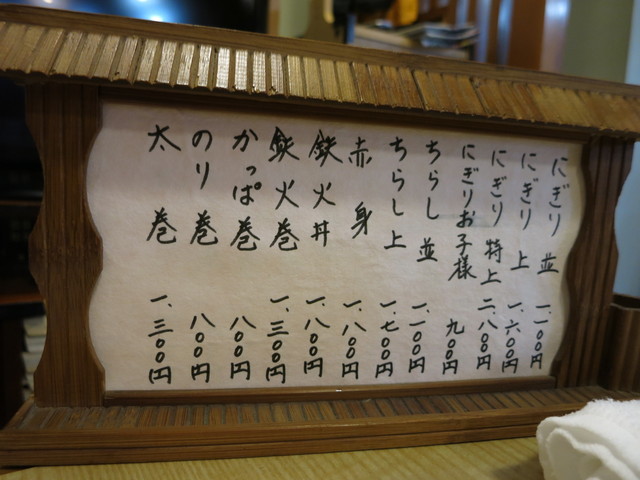 にぎり 並 一、一〇〇円
にぎり 上 一、六〇〇円
にぎり 特上 二、八〇〇円
にぎりお子様 九〇〇円
ちらし 並 一、一〇〇円
ちらし 上 一、七〇〇円
赤身 一、八〇〇円
鉄火丼 一、八〇〇円
鉄火巻 一、三〇〇円
かっぱ巻 八〇〇円
のり巻 八〇〇円
太巻 一、三〇〇円